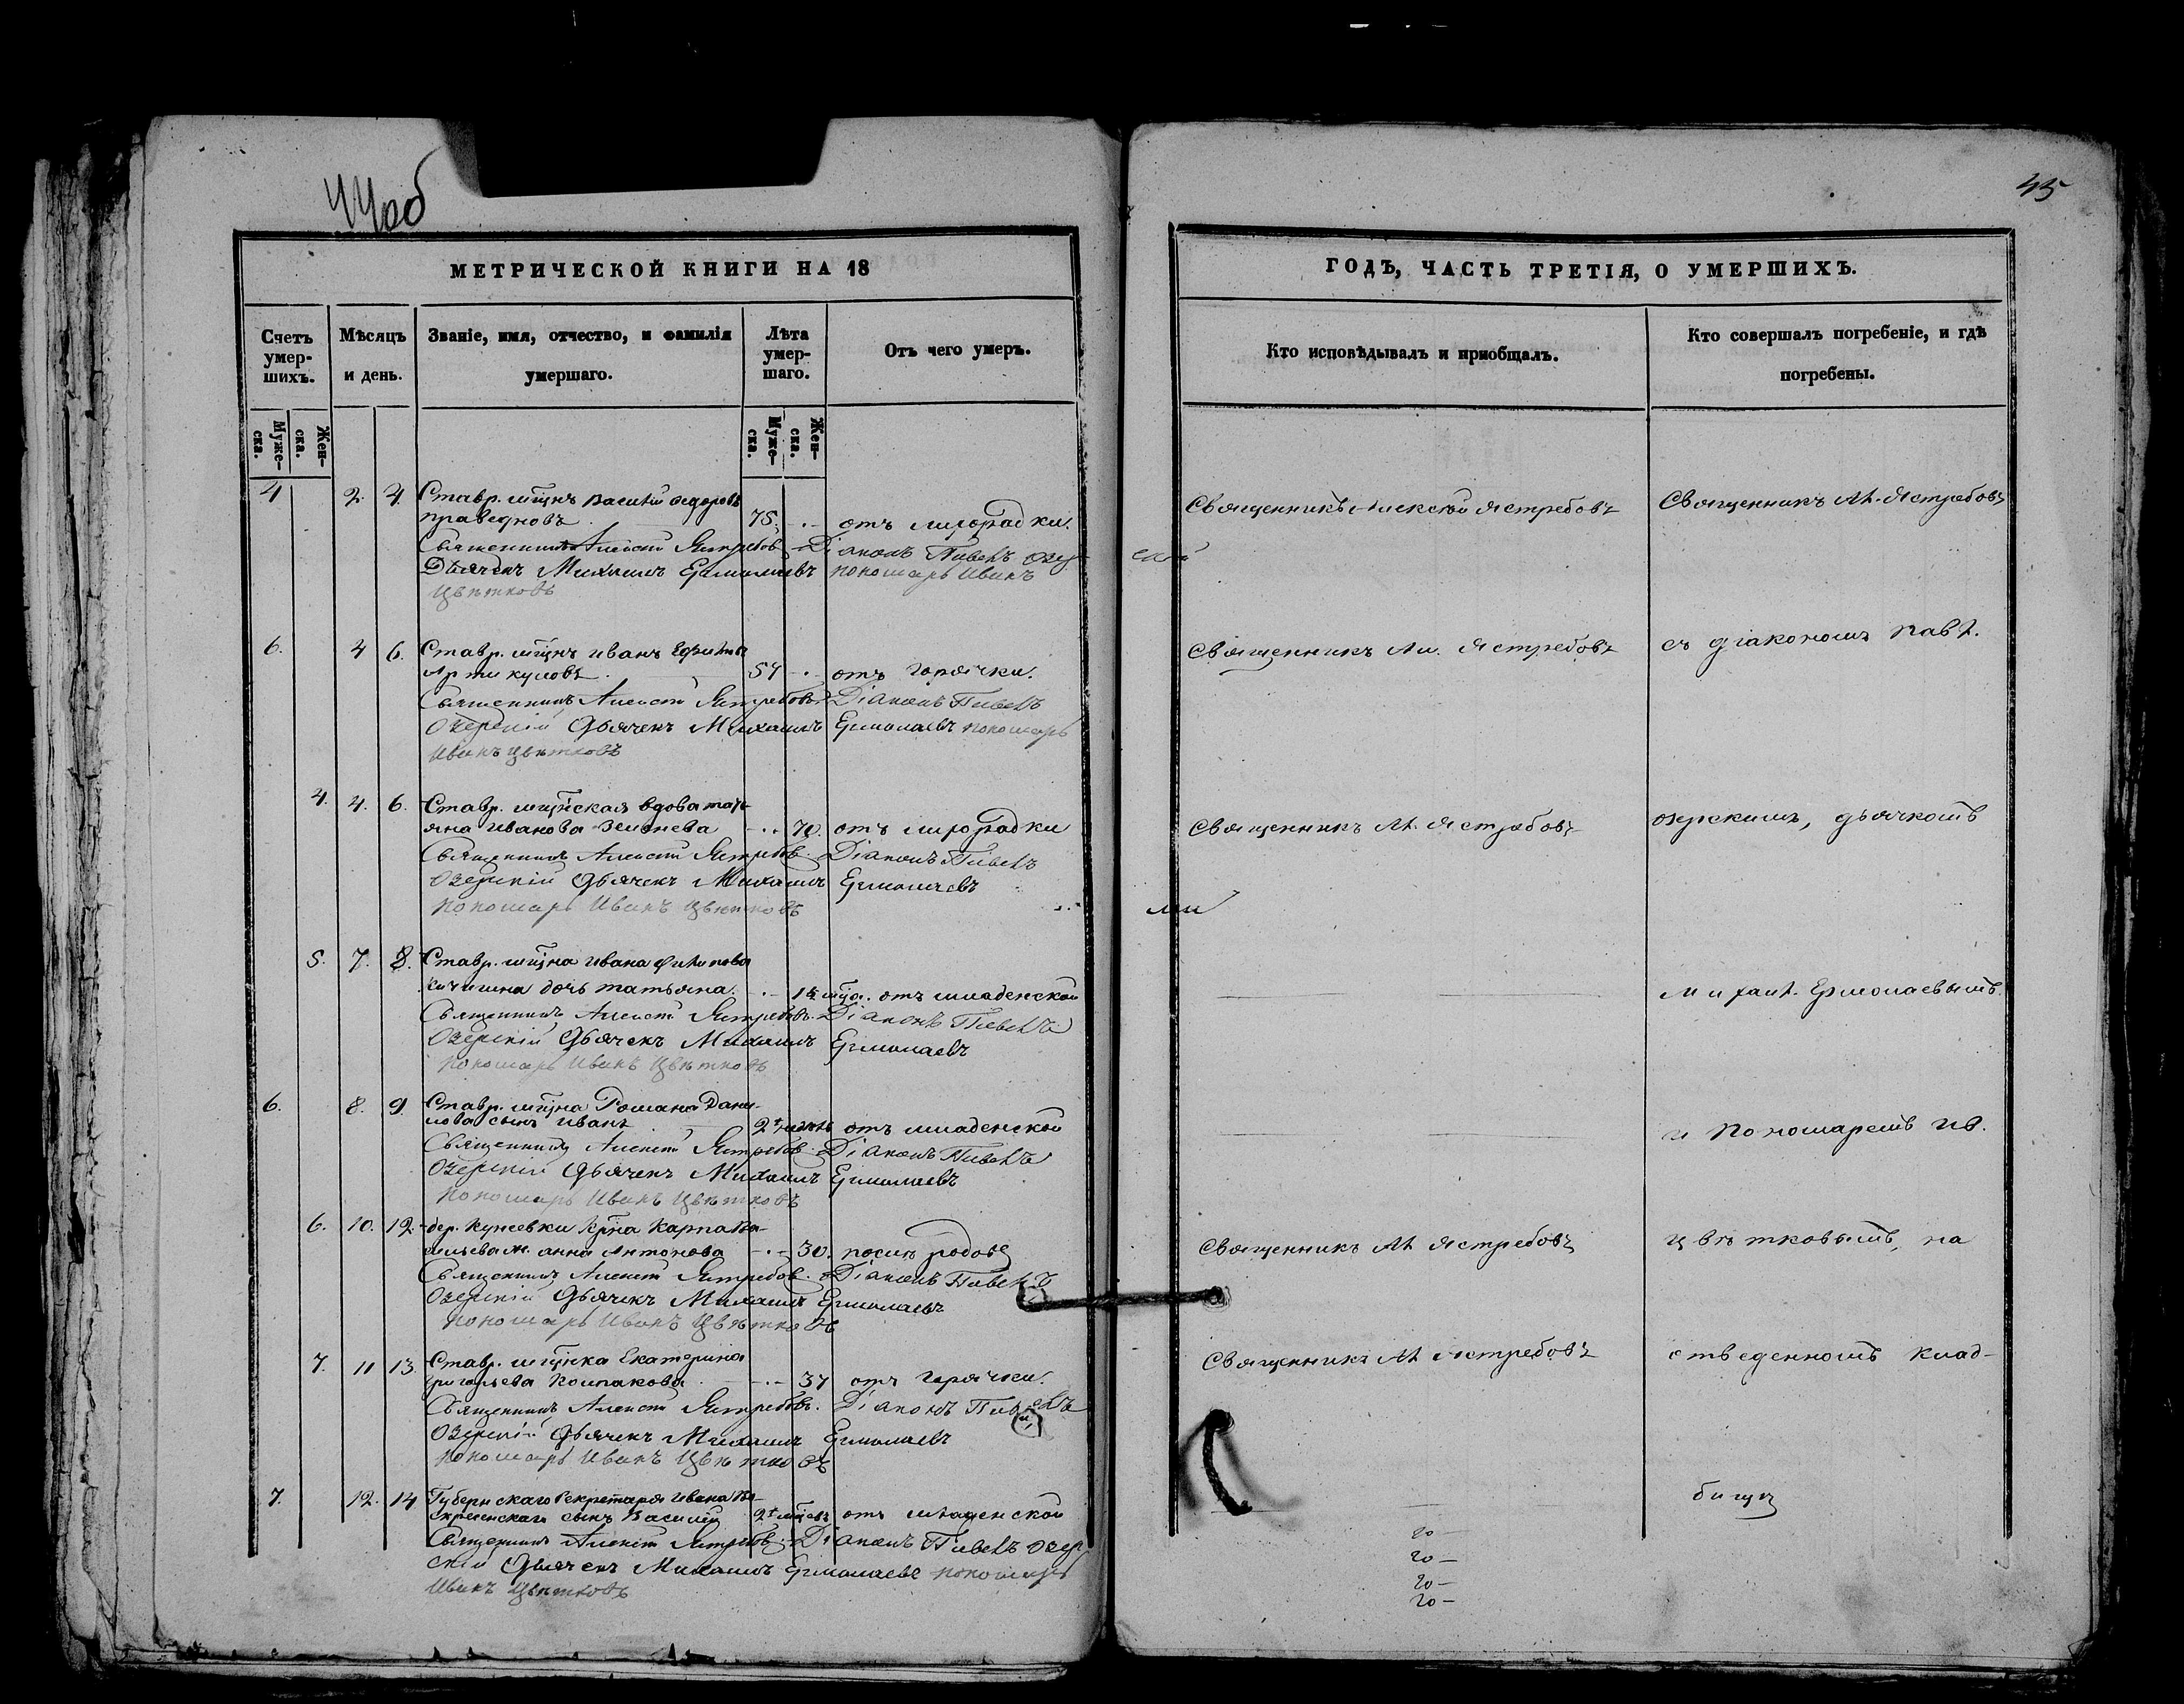 44об
МЕТРИЧЕСКОЙ КНИГИ НА 18
Счетъ умер-шихъ.
Мѣсяцъ и день.
Званіе, имя, отчество, и фамилія умершаго.
Лѣта умер-шаго.
Отъ чего умеръ.
Муже-ска.
Жен-ска.
Муже-ска.
Жен-ска.
4 2. 4 Ставр. мщнъ Василій Ѳедоровъ
Праведновъ 75. отъ лихорадки.
Священникъ Алексѣй Ястребовъ Діаконъ Павелъ Озер
ской
Дьячекъ Михаилъ Ермолаевъ пономарь Иванъ
Цвѣтковъ
6. 4 6. Ставр. мщнъ Иванъ
54 отъ горячки.
Священникъ Алексѣй Ястребовъ Діаконъ Павелъ
Озерскій Дьячекъ Михаилъ Ермолаевъ пономарь
Иванъ Цвѣтковъ
4. 4. 6. Ставр. мщнская вдова Тать-
яна Иванова 70. отъ лихорадки
Священникъ Алексѣй Ястребовъ Діаконъ Павелъ
Озерскій Дьячекъ Михаилъ Ермолаевъ
пономарь Иванъ Цвѣтковъ
5. 7. 8. Ставр. мщна Ивана Филипова
дочь Татьяна. отъ младенской
Священникъ Алексѣй Ястребовъ Діаконъ Павелъ
Озерскій Дьячекъ Михаилъ Ермолаевъ
пономарь Иванъ Цвѣтковъ
6. 8. 9. Ставр. мщна Романа Дани-
лова сынъ Иванъ отъ младенской
Священникъ Алексѣй Ястребовъ Діаконъ Павелъ
Озерскій Дьячекъ Михаилъ Ермолаевъ
пономарь Иванъ Цвѣтковъ
6. 10. 12. дер. Кунеевки Карпа Ва-
сильева ж. Анна Антонова 30. послѣ родовъ
Священникъ Алексѣй Ястребовъ Діаконъ Павелъ
Озерскій Дьячекъ Михаилъ Ермолаевъ
пономарь Иванъ Цвѣтковъ
7. 11 13. Ставр. мщнка Екатерина
Григорьева Колпакова 37 отъ горячки.
Священникъ Алексѣй Ястребовъ. Діаконъ Павелъ
Озерскій Дьячекъ Михаилъ Ермолаевъ
пономарь Иванъ Цвѣтковъ
7. 12. 14 Губернскаго Секретаря Ивана
сынъ Василій отъ младенской
Священникъ Алексѣй Ястребовъ Діаконъ Павелъ Озер
скій Дьячекъ Михаилъ Ермолаевъ пономарь
Иванъ Цвѣтковъ
45
ГОДЪ, ЧАСТЬ ТРЕТІЯ, О УМЕРШИХЪ.
Кто исповѣдывалъ и пріобщалъ.
Кто совершалъ погребеніе, и гдѣ погребены.
Священникъ Алексѣй Ястребовъ Священникъ Ал. Ястребовъ
Священникъ Ал. Ястребовъ съ діакономъ Павл.
Священникъ Ал. Ястребовъ Озерскимъ, дьячкомъ
ми
Михаил. Ермолаевымъ
и пономаремъ Ив.
Священникъ Ал. Ястребовъ Цвѣтковымъ, на
Священникъ Ал. Ястребовъ отведенномъ клад-
бищѣ
20 —
20 —
20 —
20 —